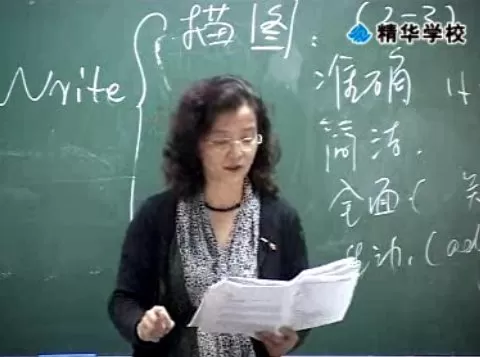 精华学校
描图：(2-3)
Write {
准确
简洁.
全面(
生动.(ad